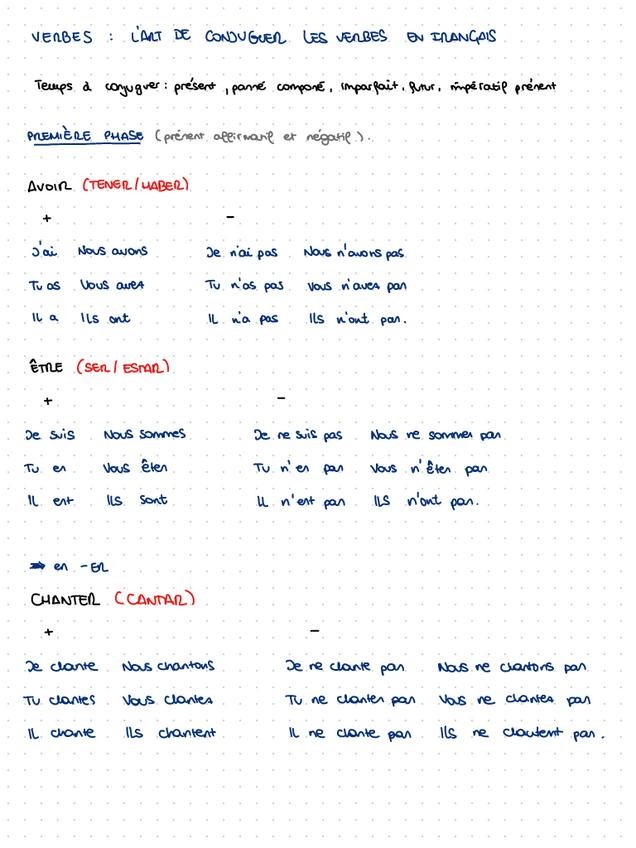 VERBES : L'ART DE CONJUGUER LES VERBES EN FRANÇAIS
Temps à conjuguer : présent, passé composé, imparfait, futur, impératif présent
PREMIÈRE PHASE (présent affirmatif et négatif).
AVOIR (TENER/HABER)
+ -
J'ai Nous avons Je n'ai pas Nous n'avons pas
Tu as Vous avez Tu n'as pas Vous n'avez pas
Il a Ils ont Il n'a pas Ils n'ont pas.
ÊTRE (SER/ESTAR)
+ -
Je suis Nous sommes Je ne suis pas Nous ne sommes pas
Tu es Vous êtes Tu n'es pas Vous n'êtes pas
Il est Ils sont Il n'est pas Ils n'ont pas.
➡ en -ER
CHANTER (CANTAR)
+ -
Je chante Nous chantons Je ne chante pas Nous ne chantons pas
Tu chantes Vous chantez Tu ne chantes pas Vous ne chantez pas
Il chante Ils chantent Il ne chante pas Ils ne chantent pas.